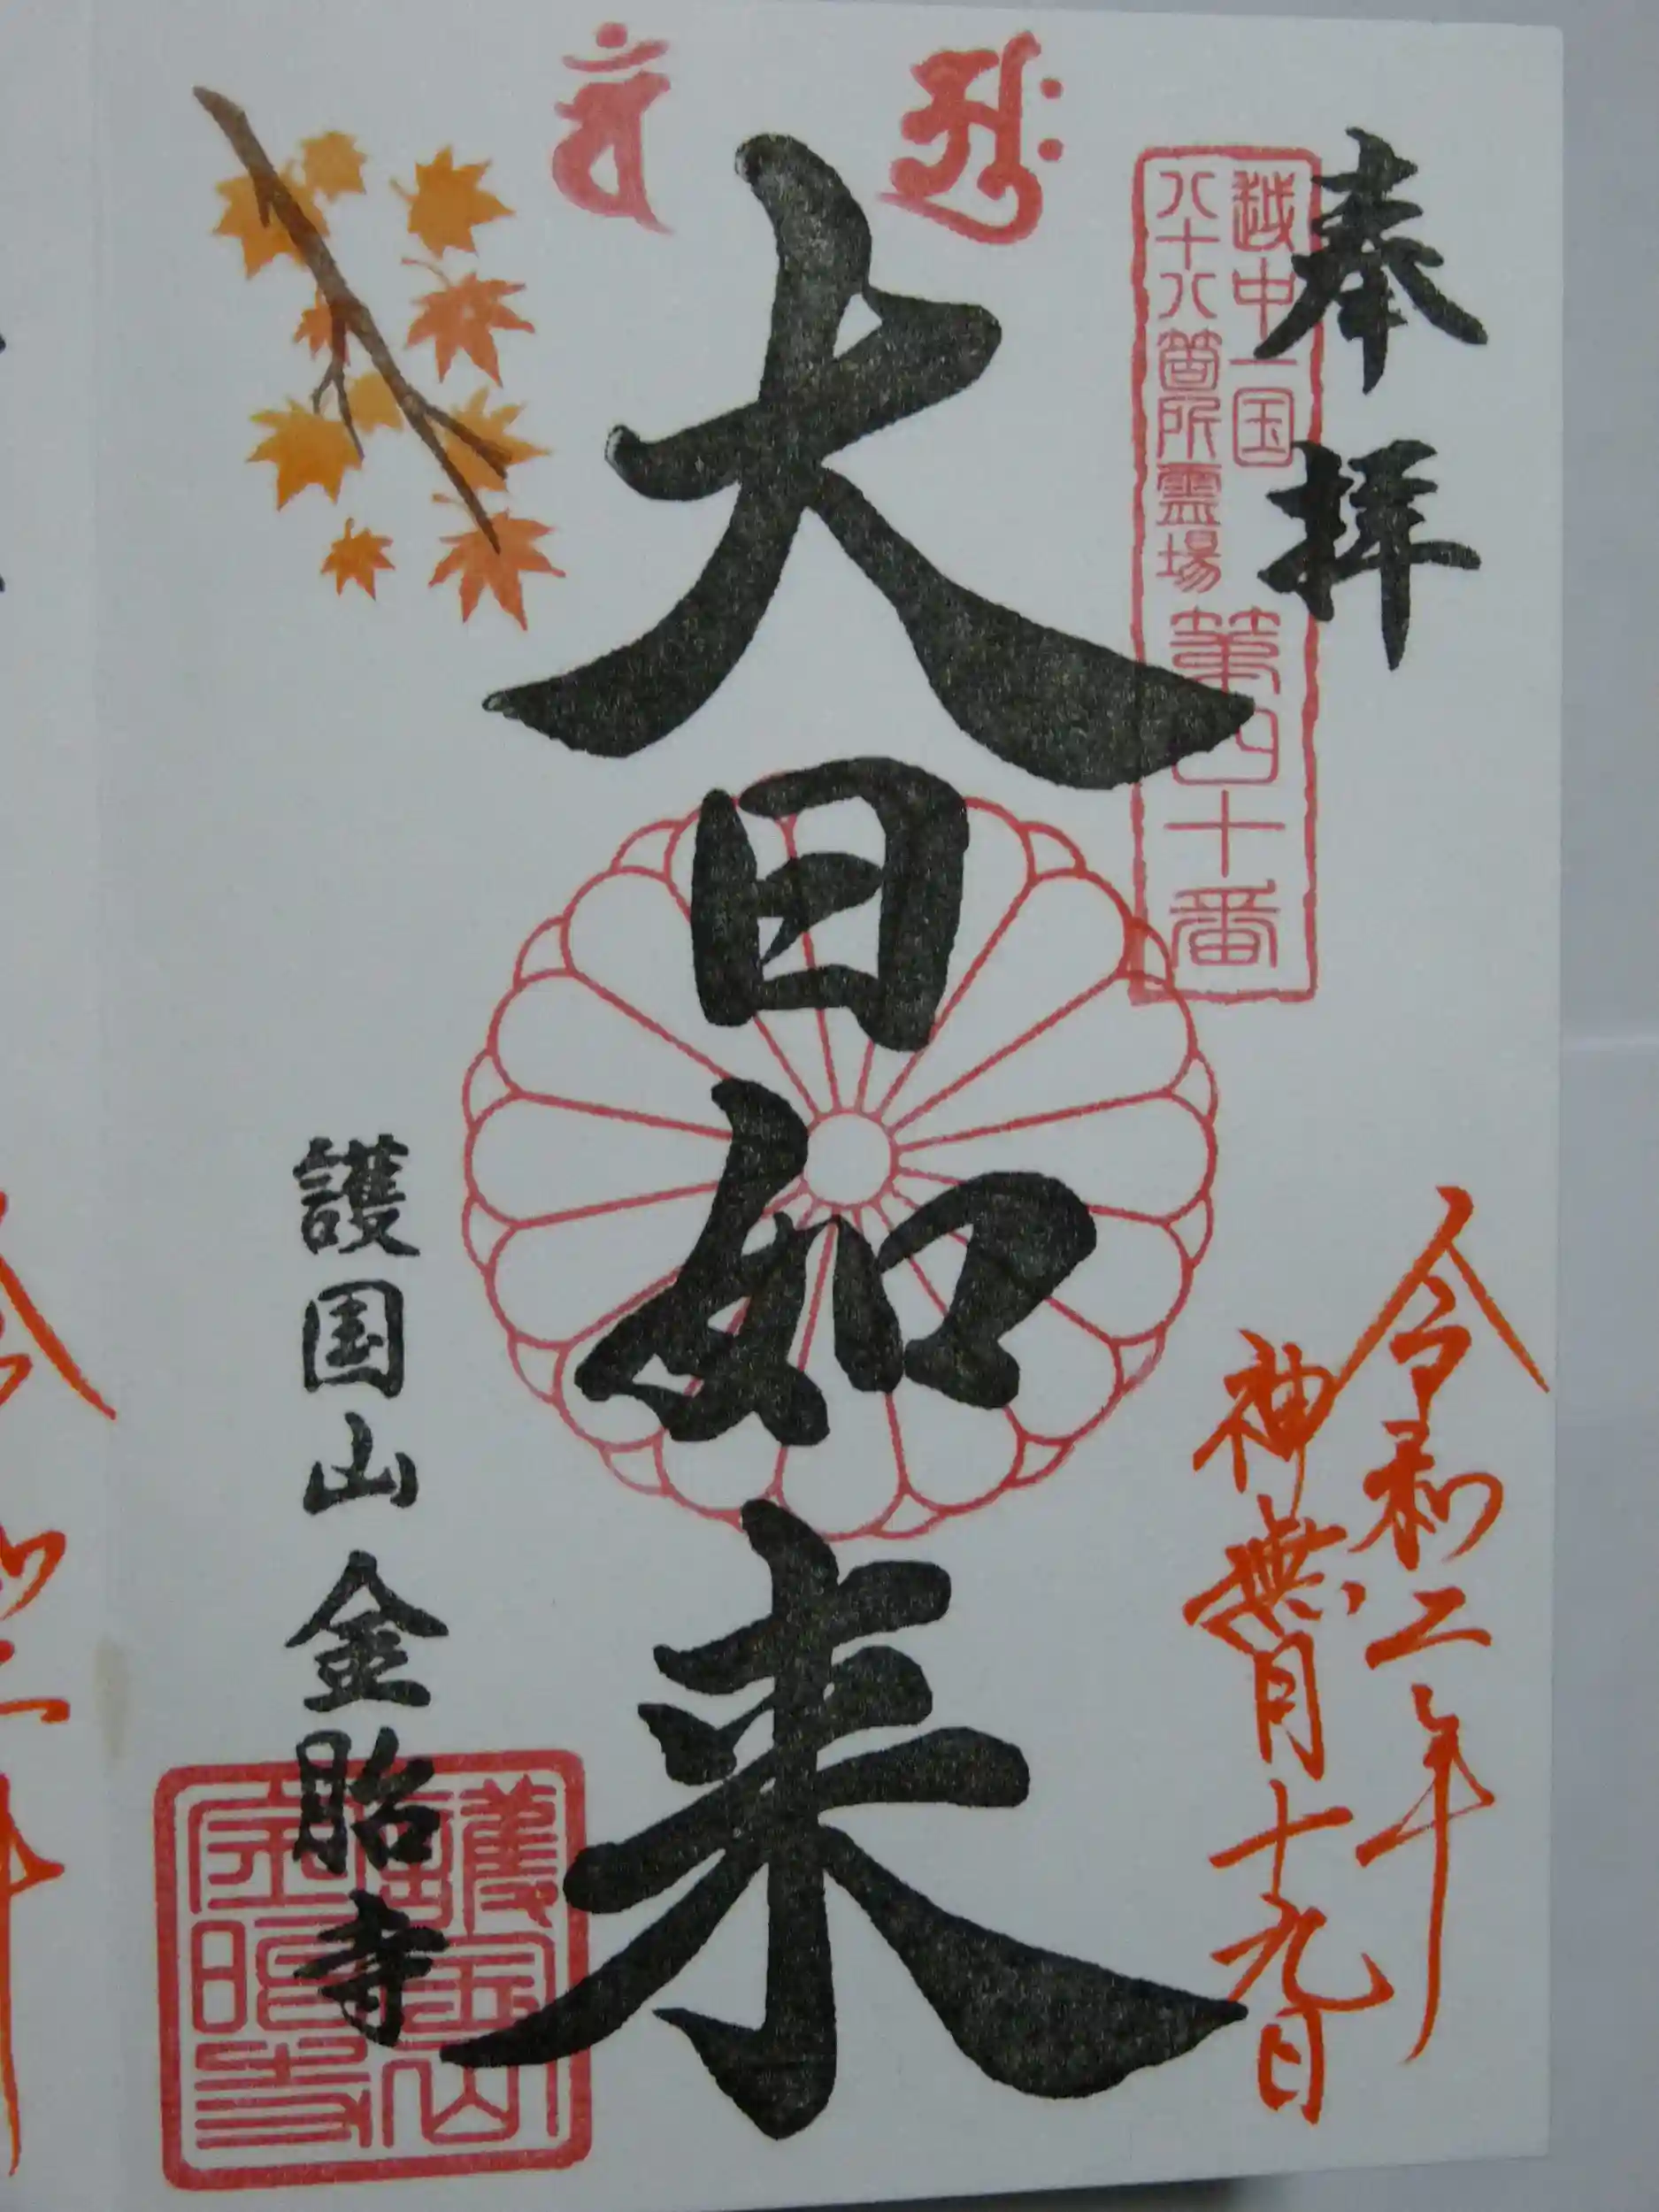 奉拝
越中一国
八十八箇所霊場
第四十番
令和二年
神無月十九日
大日如来
護国山金胎寺